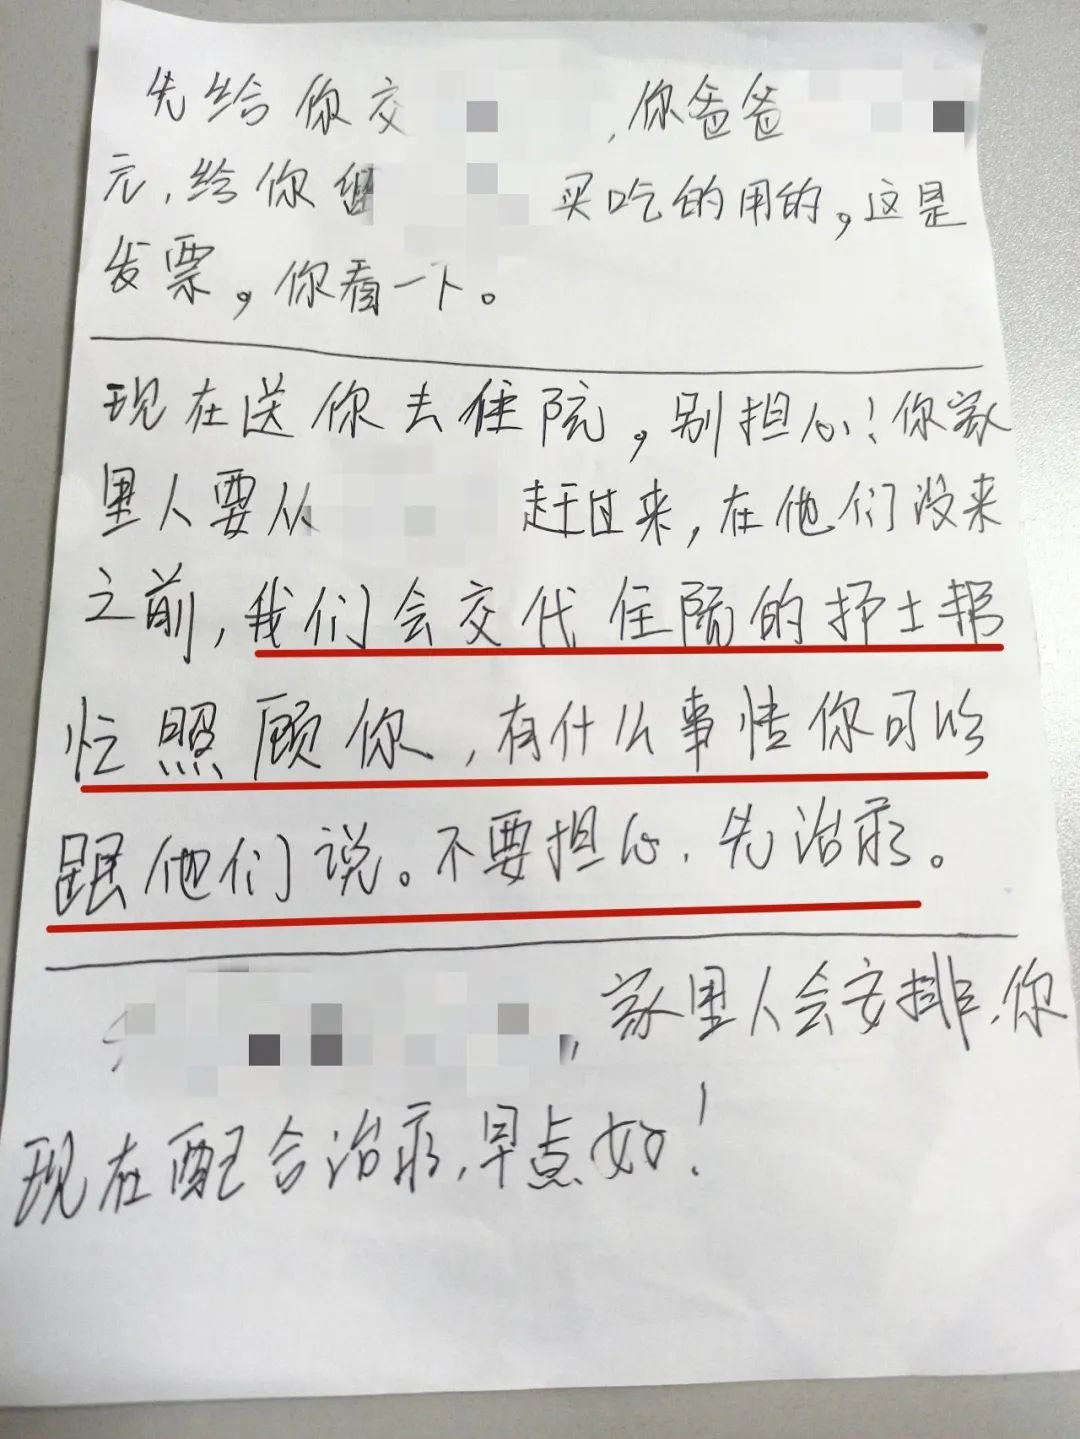 先给你交 ,你爸爸
元,给你 买吃的用的,这是
发票,你看一下。
现在送你去住院,别担心!你家
里人要从 赶过来,在他们没来
之前,我们会交代住院的护士帮
忙照顾你,有什么事情你可以
跟他们说。不要担心,先治疗。
,家里人会安排,你
现在配合治疗,早点好!